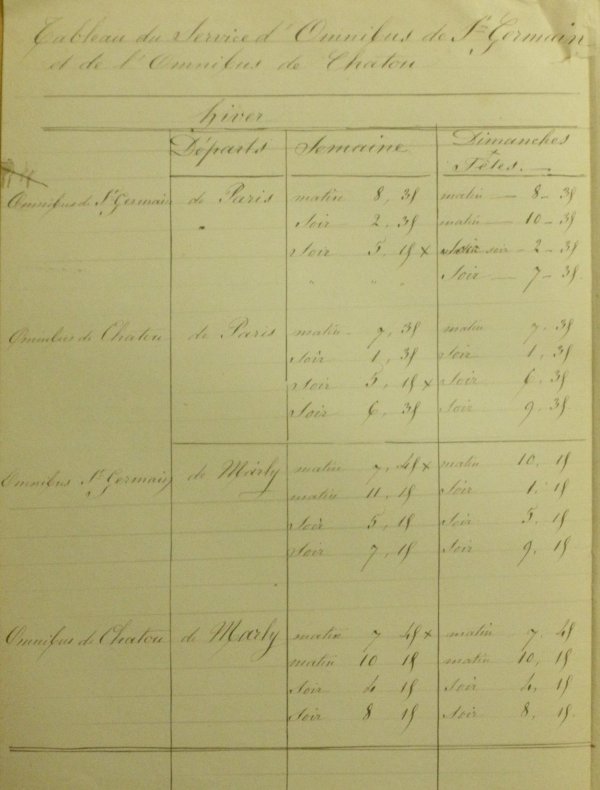 Tableau du Service d'Omnibus de St Germain
et de l'Omnibus de Chatou
hiver
Départs Semaine Dimanches
+ Fêtes.
Omnibus de St Germain de Paris matin 8, 35 matin — 8 — 35
Soir 2, 35 matin — 10 — 35
Soir 5, 15 x soir — 2 — 35
" " " Soir — 7 — 35
Omnibus de Chatou de Paris matin 7, 35 matin 7, 35
Soir 1, 35 Soir 1, 35
Soir 5, 15 x Soir 6, 35
Soir 6, 35 Soir 9, 35
Omnibus St Germain de Marly matin 7, 45 x matin 10, 15
matin 11, 15 Soir 1, 15
Soir 5, 15 Soir 5, 15
Soir 7, 15 Soir 9, 15
Omnibus de Chatou de Marly matin 7 45 x matin 7, 45
matin 10 15 matin 10, 15
Soir 4 15 Soir 4, 15
Soir 8 15 Soir 8, 15